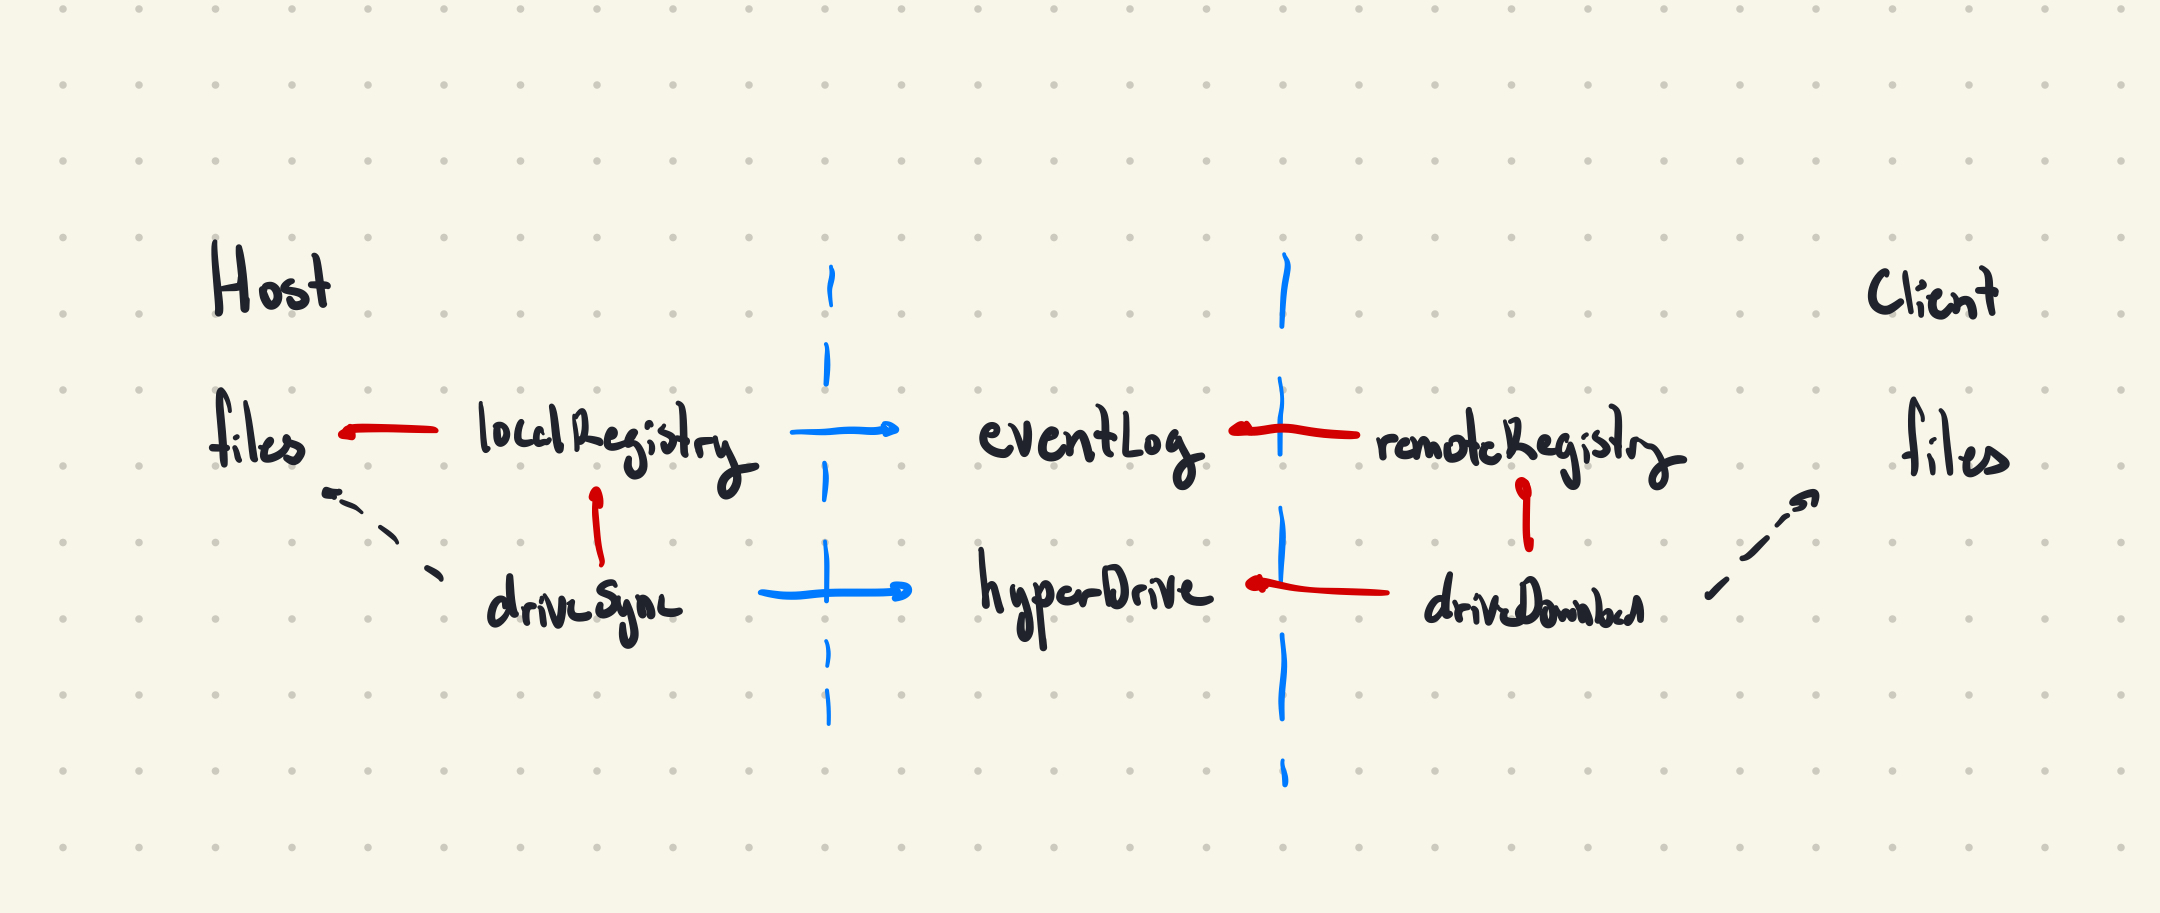 Host Client
files localRegistry eventLog remoteRegistry files
driveSync hyperDrive